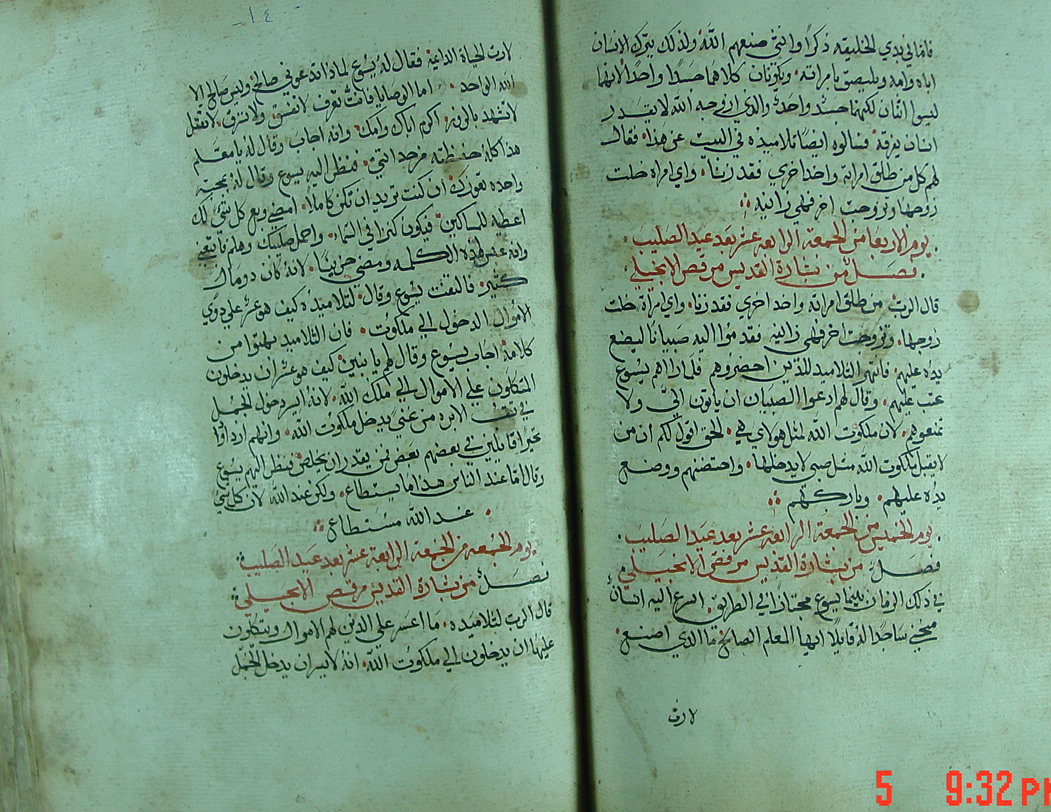 فاما في بدي الخليقه ذكرًا وانثى صنعهم الله ولذلك يترك الانسان
اباه وامه ويلصق بامراته ويكونان كلاهما جسدًا واحدًا لانهما
ليسوا اثنان لكنهما جسد واحد والذي ازوجه الله لا يقدر
انسان يفرقه فسالوه ايضًا تلاميذه في البيت عن هذا فقال
لهم كل من طلق امراته واخد اخري فقد زنا واي امراه خلت
زوجها وتزوجت اخر فهي زانيه
يوم الاربعا من الجمعة الرابعه عشر بعد عيد الصليب
فصل من بشارة القديس مرقص الانجيلي
قال الرب من طلق امراته واخد اخري فقد زنا واي امراة خلت
زوجها وتزوجت اخر فهي زانيه فقدموا اليه صبيانًا ليضع
يده عليهم فانتهر التلاميذ للذين احضروهم فلما راهم يسوع
عتب عليهم وقال لهم ادعوا الصبيان ان ياتون الي ولا
تمنعوهم لان ملكوت الله لمثل هولاي هي الحق اقول لكم ان من
لا يقبل ملكوت الله مثل صبي لا يدخلها واحتضنهم ووضع
يده عليهم وباركهم
يوم الخميس من الجمعة الرابعه عشر بعد عيد الصليب
فصل من بشارة القديس مرقص الانجيلي
في ذلك الزمان بينما يسوع مجتاز في الطريق اسرع اليه انسان
مجي ساجدًا له قايلًا ايها المعلم الصالح ما الذي اصنع
لارت
١٤
لارت الحياة الدايمة فقال له يسوع لماذا تدعوني صالح وليس صالح الا
الله الواحد اما الوصايا فانت تعرف لا تفسق ولا تسرق لا تقتل
لا تشهد بالزور اكرم اباك وامك وانه اجاب وقال له يا معلم
هذا كله حفظته من حداثتي فنظر اليه يسوع وقال له بمحبة
واحده تعوزك ان كنت تريد ان تكن كاملًا امضي وبع كل شي لك
اعطه للمساكين فيكون كنزًا في السماء واحمل صليبك وهلم تابعني
وانه عبس لهذه الكلمه ومضي حزينًا لانه كان ذو مال
كثير فالتفت يسوع وقال لتلاميذه كيف هو عسر علي ذوي
الاموال الدخول الي ملكوت فان التلاميذ بهتوا من
كلامه اجاب يسوع وقال لهم يا بنين كيف هو عسر ان يدخلون
المتكلون علي الاموال الي ملك الله لانه ايسر دخول الجمل
في ثقب الابره من غني يدخل ملكوت الله وانهم ازدادوا
تحيرًا قايلين في بعضهم بعض من يقدر ان يخلص فنظر اليهم يسوع
وقال اما عند الناس هذا ما يستطاع ولكن عند الله لان كل شي
عند الله مستطاع
يوم الجمعه من الجمعة الرابعة عشر بعد عيد الصليب
فصل من بشارة القديس مرقص الانجيلي
قال الرب لتلاميذه ما اعسر علي الذين لهم الاموال ويتكلون
عليها ان يدخلون الي ملكوت الله انه لايسر ان يدخل الجمل
5 9:32 PM